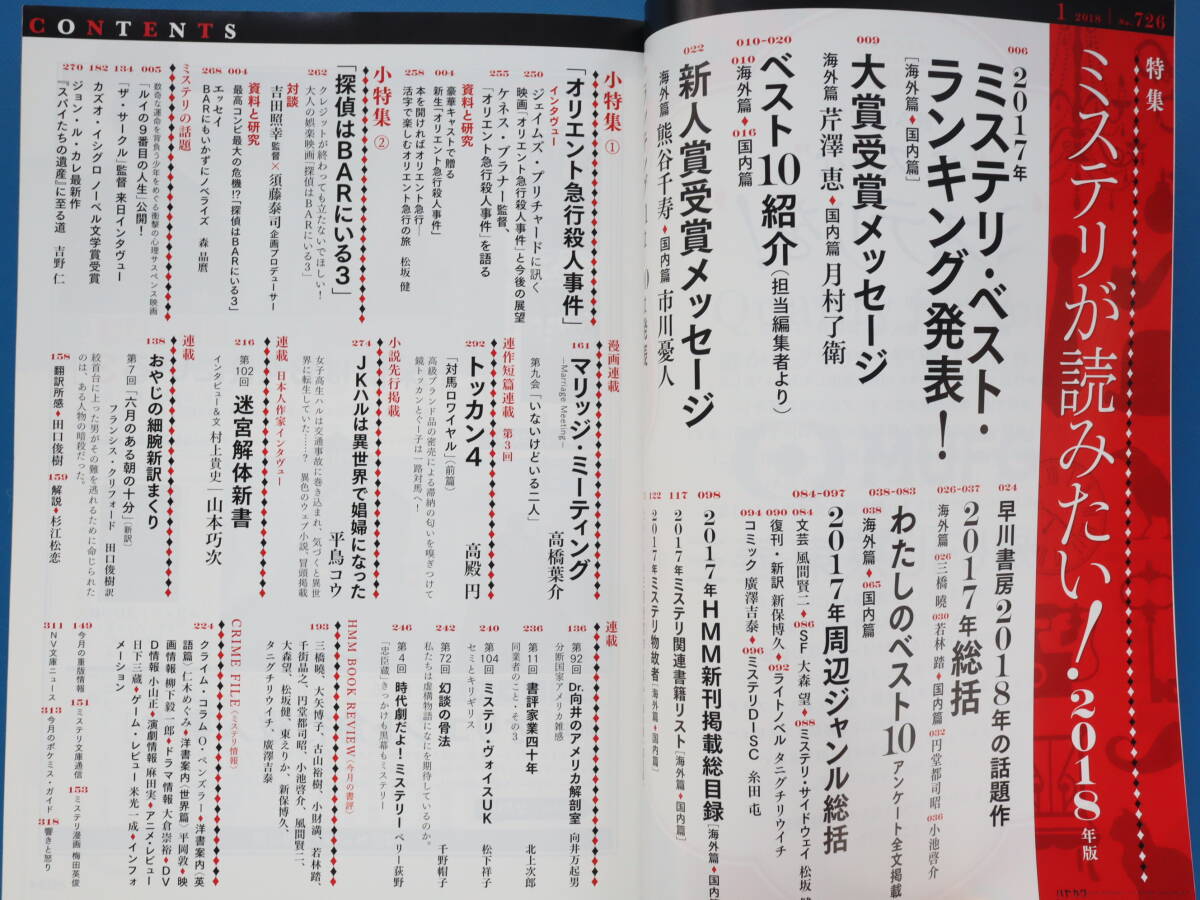 1 2018 No.726
特集
ミステリが読みたい!2018年版
006
2017年
ミステリ・ベスト・
ランキング発表!
[海外篇♦国内篇]
009
大賞受賞メッセージ
海外篇 芹澤 恵♦国内篇 月村了衛
010-020
ベスト10紹介(担当編集者より)
010 海外篇♦016 国内篇
022
新人賞受賞メッセージ
海外篇 熊谷千寿♦国内篇 市川憂人
024
早川書房2018年の話題作
026-037
2017年総括
海外篇♦026 三橋 曉 030 若林 踏♦国内篇 032 円堂都司昭 036 小池啓介
038-083
わたしのベスト10 アンケート全文掲載
038 海外篇♦065 国内篇
084-097
2017年周辺ジャンル総括
084 文芸 風間賢二♦086 SF 大森 望♦088 ミステリ・サイドウェイ 松坂 健
090 復刊・新訳 新保博久♦092 ライトノベル タニグチリウイチ
094 コミック 廣澤吉泰♦096 ミステリDISC 糸田 屯
098
2017年HMM新刊掲載総目録[海外篇♦国内
117 2017年ミステリ関連書籍リスト[海外篇♦国内篇]
122 2017年ミステリ物故者[海外篇♦国内篇]
CONTENTS
小特集①
「オリエント急行殺人事件」
インタヴュー
250 ジェイムズ・プリチャードに訊く
映画「オリエント急行殺人事件」と今後の展望
255 ケネス・ブラナー監督、
「オリエント急行殺人事件」を語る
資料と研究
004 豪華キャストで贈る
新生「オリエント急行殺人事件」
258 本を開ければオリエント急行―
活字で楽しむオリエント急行の旅 松坂 健
小特集②
「探偵はBARにいる3」
262 クレジットが終わっても立たないでほしい!
大人の娯楽映画「探偵はBARにいる3」
対談
吉田照幸監督×須藤泰司企画プロデューサー
資料と研究
004 最高コンビ最大の危機!?「探偵はBARにいる3」
エッセイ
268 BARにもいかずにノベライズ 森 晶麿
ミステリの話題
005 数奇な運命を背負う少年をめぐる衝撃の心理サスペンス映画
「ルイの9番目の人生」公開!
134 「ザ・サークル」監督 来日インタヴュー
182 カズオ・イシグロ ノーベル文学賞受賞
270 ジョン・ル・カレ最新作
『スパイたちの遺産』に至る道 吉野 仁
漫画連載
161 マリッジ・ミーティング
―Marriage Meeting―
第九会「いないけどいる二人」 高橋葉介
連作短篇連載 第3回
292 トッカン4 高殿 円
「対馬ロワイヤル」(前篇)
高級ブランド品の密売による滞納の匂いを嗅ぎつけて
鏡トッカンとぐー子は一路対馬へ!
小説先行掲載
274 JKハルは異世界で娼婦になった 平鳥コウ
女子高生ハルは交通事故に巻き込まれ、気づくと異世
界に転生していた……? 異色のウェブ小説、冒頭掲載
連載 日本人作家インタヴュー
216 第102回 迷宮解体新書
インタビュー&文 村上貴史 山本巧次
連載
138 おやじの細腕新訳まくり
第7回「六月のある朝の十分」(新訳)
フランシス・クリフォード 田口俊樹訳
絞首台に上った男がその難を逃れるために命じられた
のは、ある人物の暗殺だった。
158 翻訳所感♦田口俊樹 159 解説♦杉江松恋
連載
136 第92回 Dr.向井のアメリカ解剖室 向井万起男
分断国家アメリカ雑感
236 第11回 書評家業四十年 北上次郎
同業者のこと・その3
240 第104回 ミステリ・ヴォイスUK 松下祥子
セミとキリギリス
242 第72回 幻談の骨法 千野帽子
私たちは虚構物語になにを期待しているのか。
246 第4回 時代劇だよ!ミステリー ペリー荻野
「忠臣蔵」きっかけも黒幕もミステリー
HMM BOOK REVIEW〈今月の書評〉
193 三橋曉、大矢博子、古山裕樹、小財満、若林踏、
千街晶之、円堂都司昭、小池啓介、風間賢二、
大森望、松坂健、東えりか、新保博久、
タニグチリウイチ、廣澤吉泰
CRIME FILE〈ミステリ情報〉
224 クライム・コラム O・ペンズラー♦洋書案内(英
語篇)仁木めぐみ♦洋書案内(世界篇)平岡敦♦映
画情報 柳下毅一郎♦ドラマ情報 大倉崇裕♦DV
D情報 小山正♦演劇情報 麻田実♦アニメ・レビュー
日下三蔵♦ゲーム・レビュー 米光一成♦インフォ
メーション
149 今月の重版情報 151 ミステリ文庫通信 153 ミステリ漫画 梅田英俊
311 NV文庫ニュース 313 今月のポケミス・ガイド 318 響きと怒り